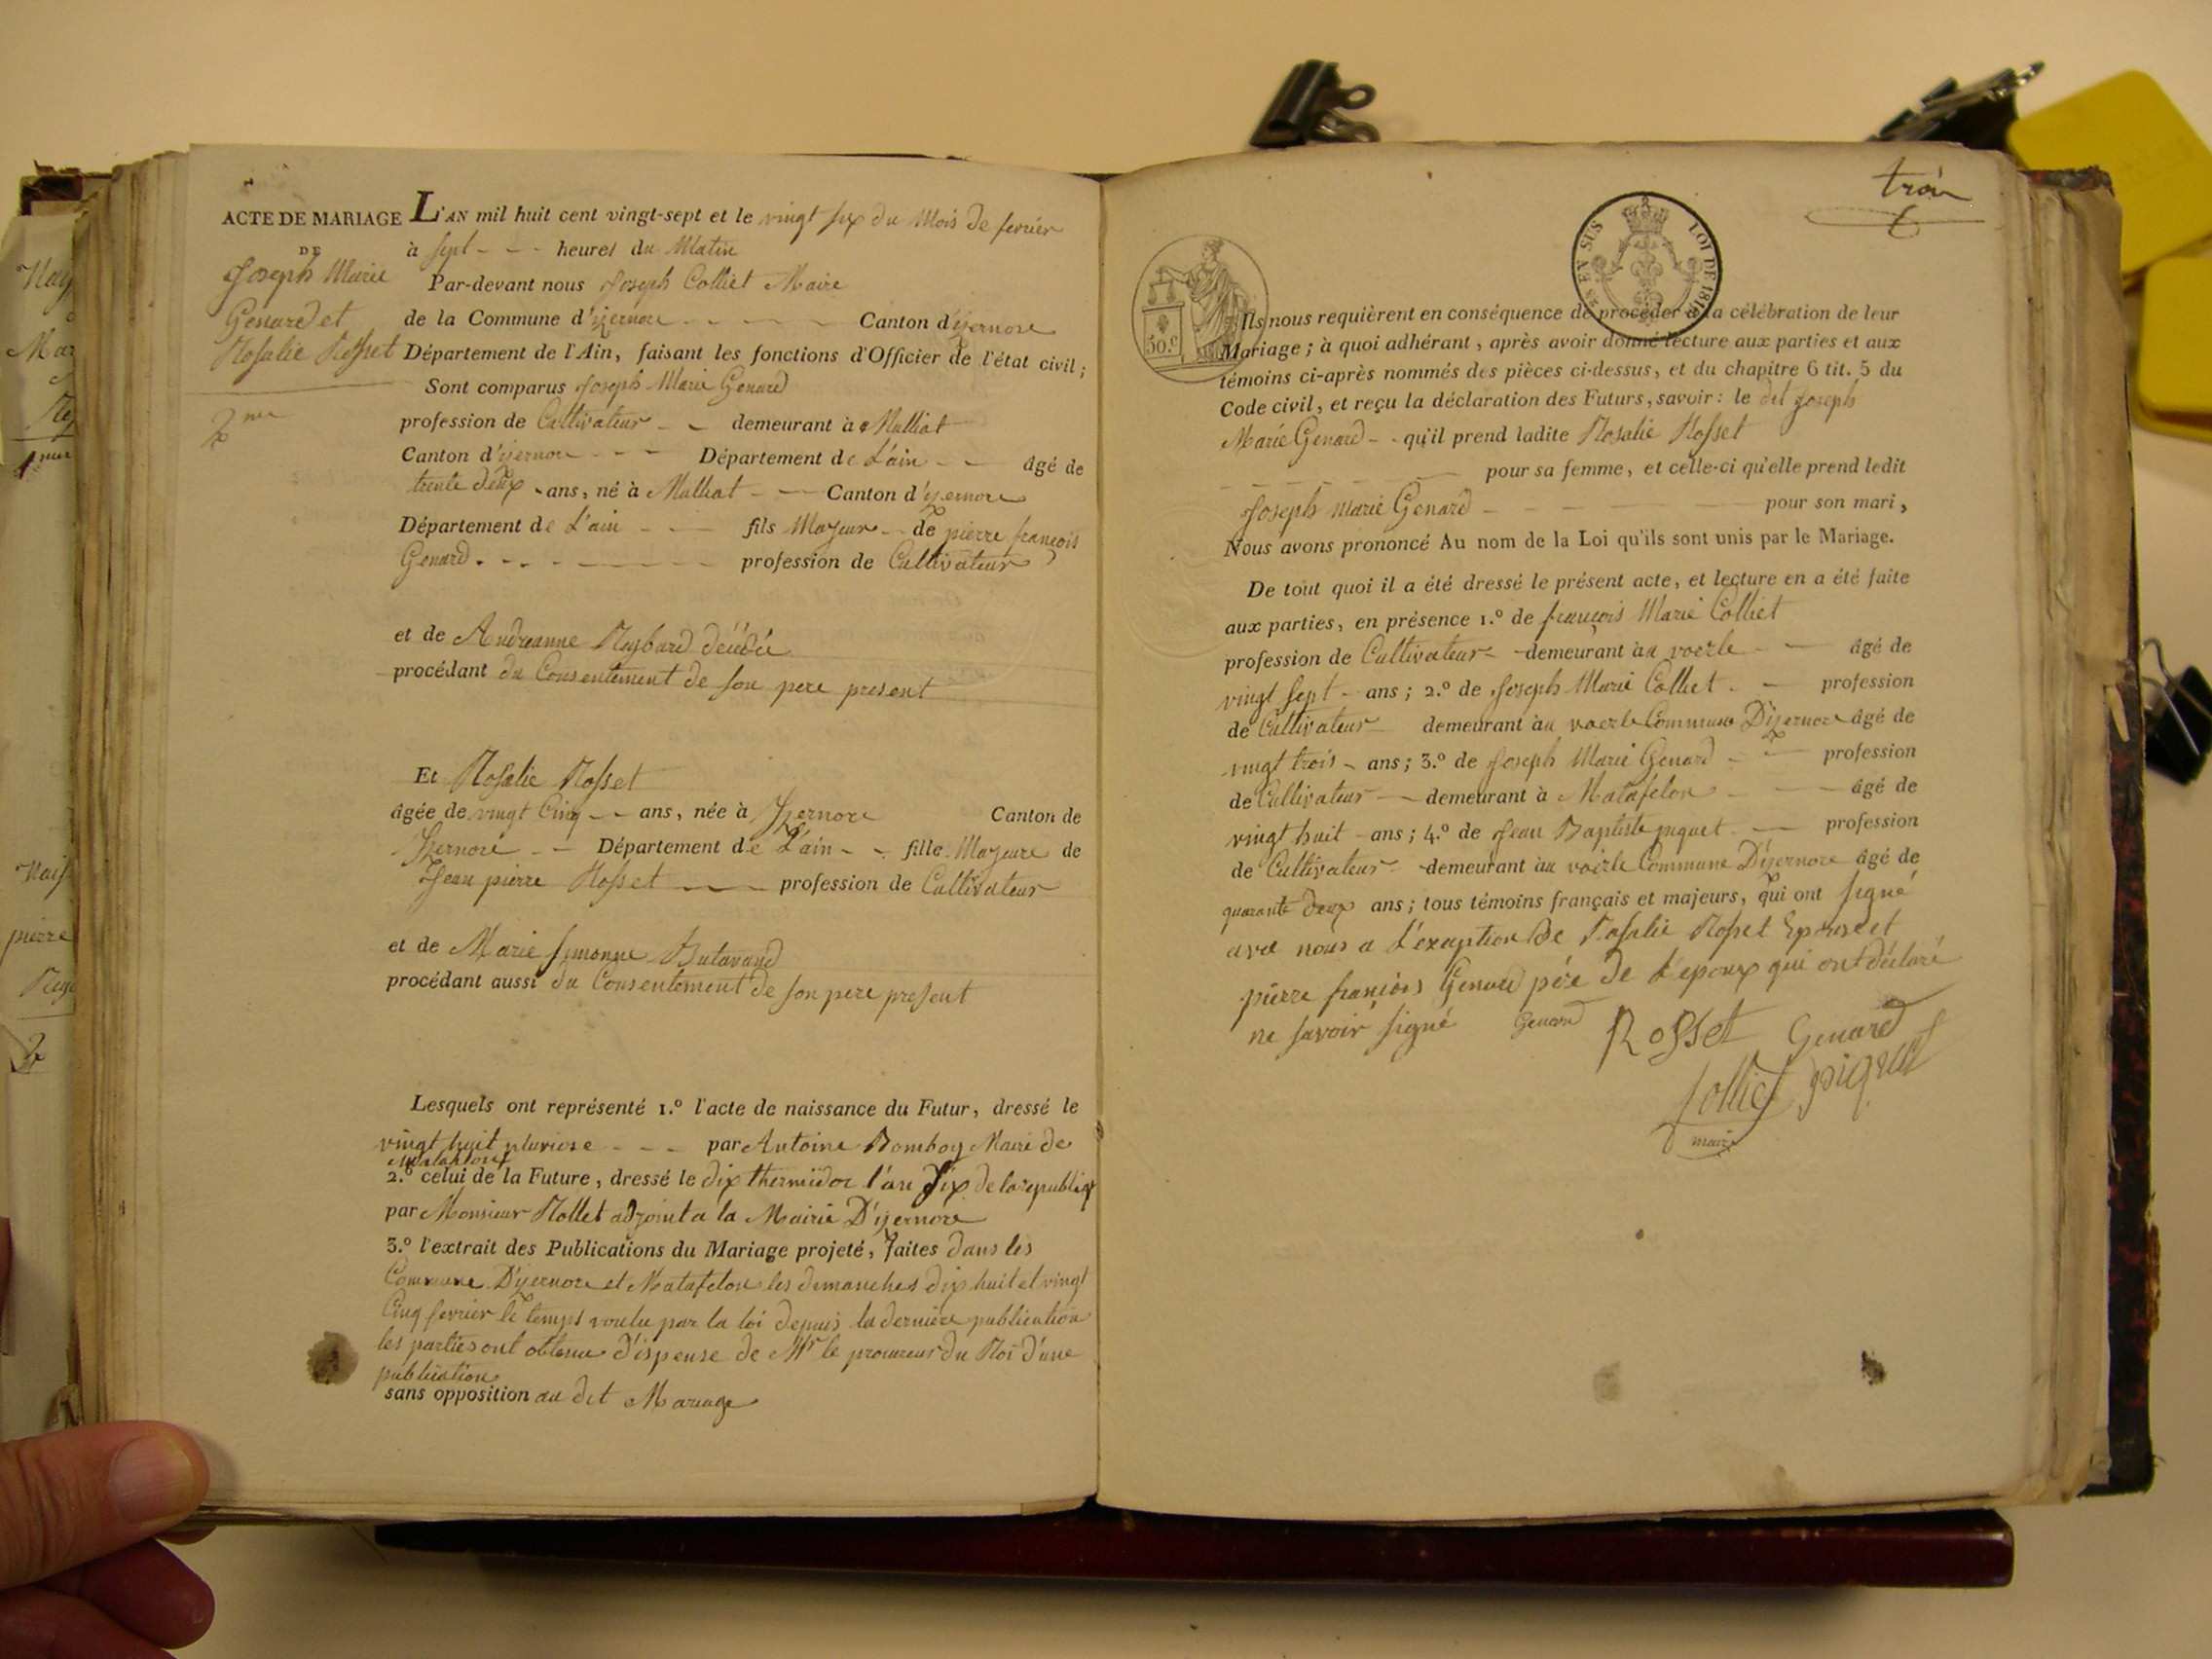 ACTE DE MARIAGE
DE
Joseph Marie
Genard et
Rosalie Rosset
2me
L'AN mil huit cent vingt-sept et le vingt six du Mois de fevrier
à sept heures du Matin
Par-devant nous Joseph Colliet Maire
de la Commune d'yzernore Canton d'yzernore
Département de l'Ain, faisant les fonctions d'Officier de l'état civil;
Sont comparus Joseph Marie Genard
profession de Cultivateur demeurant à Mulliat
Canton d'yzernore Département de L'ain âgé de
trente deux ans, né à Mulliat Canton d'yzernore
Département de L'ain fils Majeur de pierre françois
Genard profession de Cultivateur
et de Andreanne Reybard décédée
procédant du Consentement de son pere present
Et Rosalie Rosset
âgée de vingt Cinq ans, née à Yzernore Canton de
Yzernore Département de L'ain fille Majeure de
Jean pierre Rosset profession de Cultivateur
et de Marie Simonne Butavand
procédant aussi du Consentement de son pere present
Lesquels ont représenté 1.º l'acte de naissance du Futur, dressé le
vingt huit pluviose par Antoine Bomboy Maire de
2.º celui de la Future, dressé le dix thermidor l'an dix de la republiq
par Monsieur Rollet adjoint a la Mairie D'yzernore
3.º l'extrait des Publications du Mariage projeté, faites dans les
Commune D'yzernore et Matafelon les dimanches dix huit et vingt
Cinq fevrier le temps voulu par la loi depuis la derniere publication
les parties ont obtenu dispense de Mr le procureur du Roi d'une
publication
sans opposition au dit Mariage
trois
EN SUS LOI DE 1816
50.c
Ils nous requièrent en conséquence de procéder à la célébration de leur
Mariage; à quoi adhérant, après avoir donné lecture aux parties et aux
témoins ci-après nommés des pièces ci-dessus, et du chapitre 6 tit. 5 du
Code civil, et reçu la déclaration des Futurs, savoir: le dit Joseph
Marie Genard qu'il prend ladite Rosalie Rosset
pour sa femme, et celle-ci qu'elle prend ledit
Joseph marie Genard pour son mari,
Nous avons prononcé Au nom de la Loi qu'ils sont unis par le Mariage.
De tout quoi il a été dressé le présent acte, et lecture en a été faite
aux parties, en présence 1.º de françois Marie Colliet
profession de Cultivateur demeurant au voerle âgé de
vingt sept ans; 2.º de Joseph Marie Colliet profession
de Cultivateur demeurant au voerle Commune D'yzernore âgé de
vingt trois ans; 3.º de Joseph Marie Genard profession
de Cultivateur demeurant à Matafelon âgé de
vingt huit ans; 4.º de Jean Baptiste piquet profession
de Cultivateur demeurant au voerle Commune D'yzernore âgé de
quarante deux ans; tous témoins français et majeurs, qui ont signé
avec nous a L'exception de Rosalie Rosset Epouse et
pierre françois Genard pére de L'epoux qui ont déclaré
ne savoir signé Genard Rosset Genard
Colliet piquet
maire